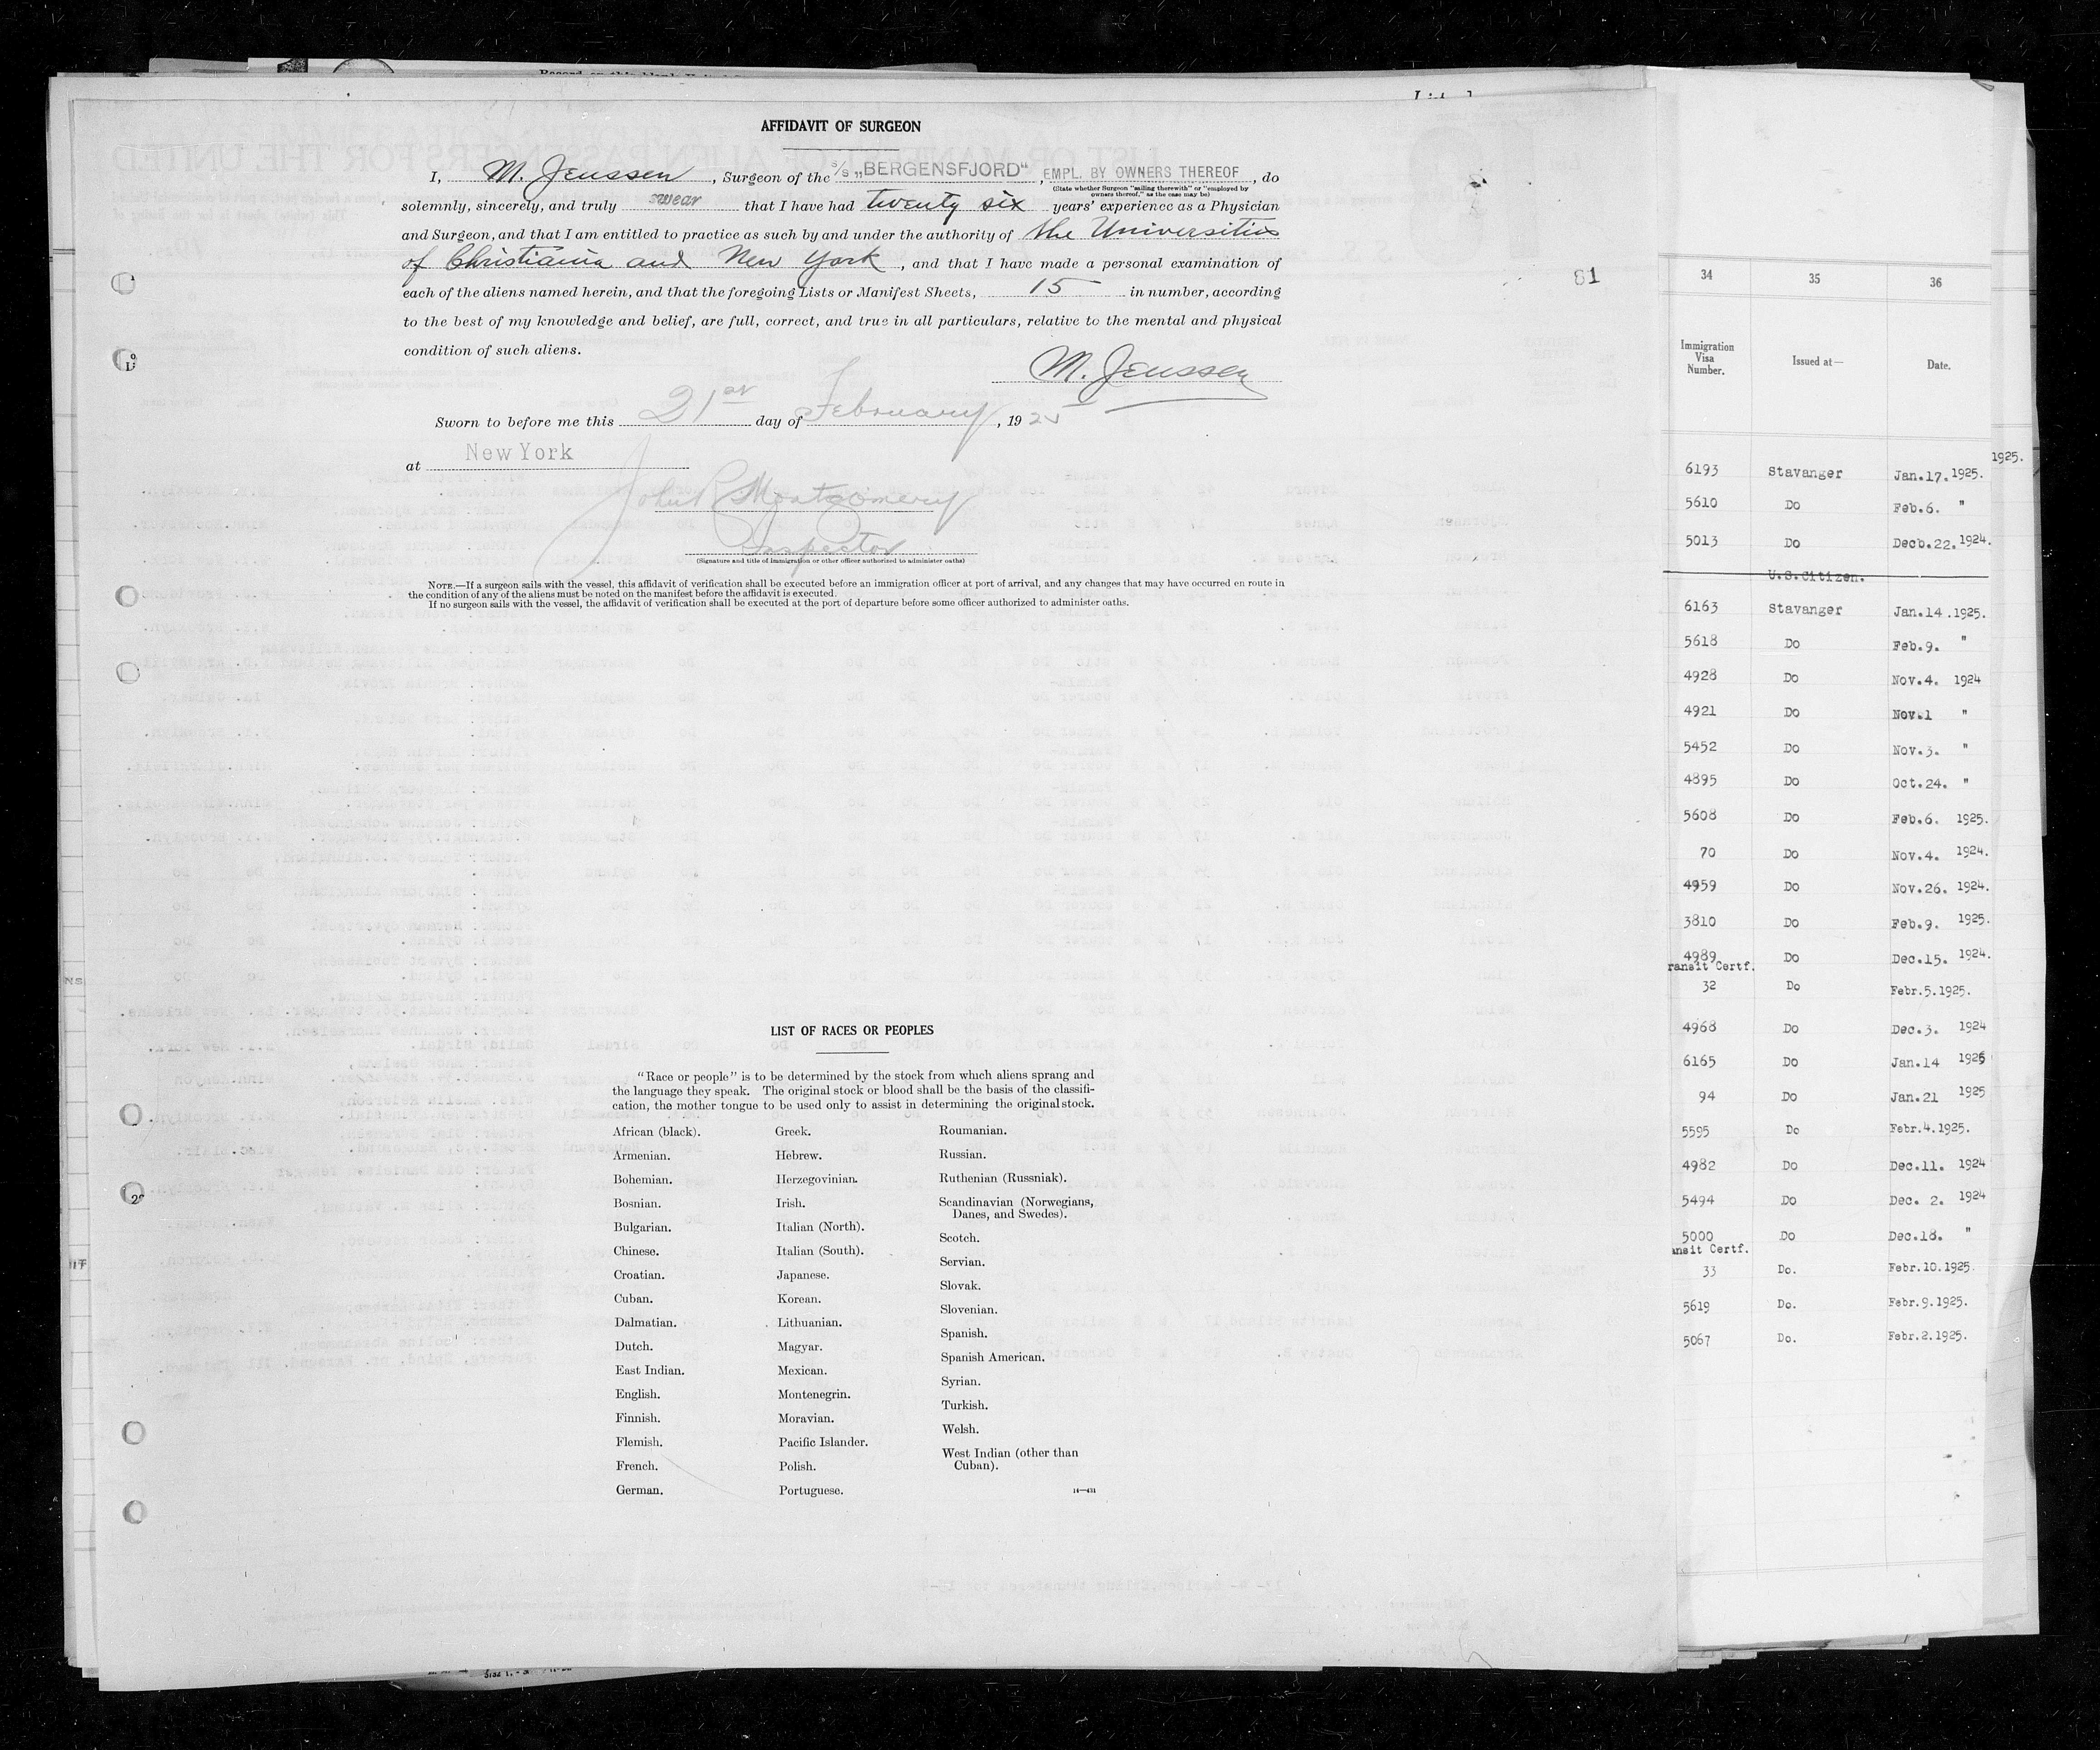 AFFIDAVIT OF SURGEON
I, M. Jenssen, Surgeon of the S/S „BERGENSFJORD“, EMPL. BY OWNERS THEREOF, do
(State whether Surgeon "sailing therewith" or "employed by
owners thereof," as the case may be)
solemnly, sincerely, and truly swear that I have had twenty six years' experience as a Physician
and Surgeon, and that I am entitled to practice as such by and under the authority of the Universities
of Christiania and New York, and that I have made a personal examination of
each of the aliens named herein, and that the foregoing Lists or Manifest Sheets, 15 in number, according
to the best of my knowledge and belief, are full, correct, and true in all particulars, relative to the mental and physical
condition of such aliens.
M. Jenssen
Sworn to before me this 21st day of February, 1925
at New York
John R Montgomery
Inspector
(Signature and title of immigration or other officer authorized to administer oaths)
NOTE.—If a surgeon sails with the vessel, this affidavit of verification shall be executed before an immigration officer at port of arrival, and any changes that may have occurred en route in
the condition of any of the aliens must be noted on the manifest before the affidavit is executed.
If no surgeon sails with the vessel, the affidavit of verification shall be executed at the port of departure before some officer authorized to administer oaths.
81
LIST OF RACES OR PEOPLES
"Race or people" is to be determined by the stock from which aliens sprang and
the language they speak. The original stock or blood shall be the basis of the classifi-
cation, the mother tongue to be used only to assist in determining the original stock.
African (black).
Armenian.
Bohemian.
Bosnian.
Bulgarian.
Chinese.
Croatian.
Cuban.
Dalmatian.
Dutch.
East Indian.
English.
Finnish.
Flemish.
French.
German.
Greek.
Hebrew.
Herzegovinian.
Irish.
Italian (North).
Italian (South).
Japanese.
Korean.
Lithuanian.
Magyar.
Mexican.
Montenegrin.
Moravian.
Pacific Islander.
Polish.
Portuguese.
Roumanian.
Russian.
Ruthenian (Russniak).
Scandinavian (Norwegians,
Danes, and Swedes).
Scotch.
Servian.
Slovak.
Slovenian.
Spanish.
Spanish American.
Syrian.
Turkish.
Welsh.
West Indian (other than
Cuban).
14—431
34 35 36
Immigration
Visa
Number.
Issued at—
Date.
1925.
6193 Stavanger Jan.17.1925.
5610 Do Feb.6. "
5013 Do Decb.22.1924.
U.S.Citizen.
6163 Stavanger Jan.14.1925.
5618 Do Feb.9. "
4928 Do Nov.4. 1924
4921 Do Nov.1 "
5452 Do Nov.3. "
4895 Do Oct.24. "
5608 Do Feb.6. 1925.
70 Do Nov.4. 1924.
4959 Do Nov.26. 1924.
3810 Do Feb.9. 1925.
4989 Do Dec.15. 1924.
ransit Certf.
32 Do Febr.5.1925.
4968 Do Dec.3. 1924
6165 Do Jan.14 1925
94 Do Jan.21 1925
5595 Do Febr.4.1925.
4982 Do Dec.11. 1924
5494 Do Dec. 2. 1924
5000 Do Dec.18. "
ansit Certf.
33 Do. Febr.10.1925.
5619 Do. Febr.9.1925.
5067 Do. Febr.2.1925.